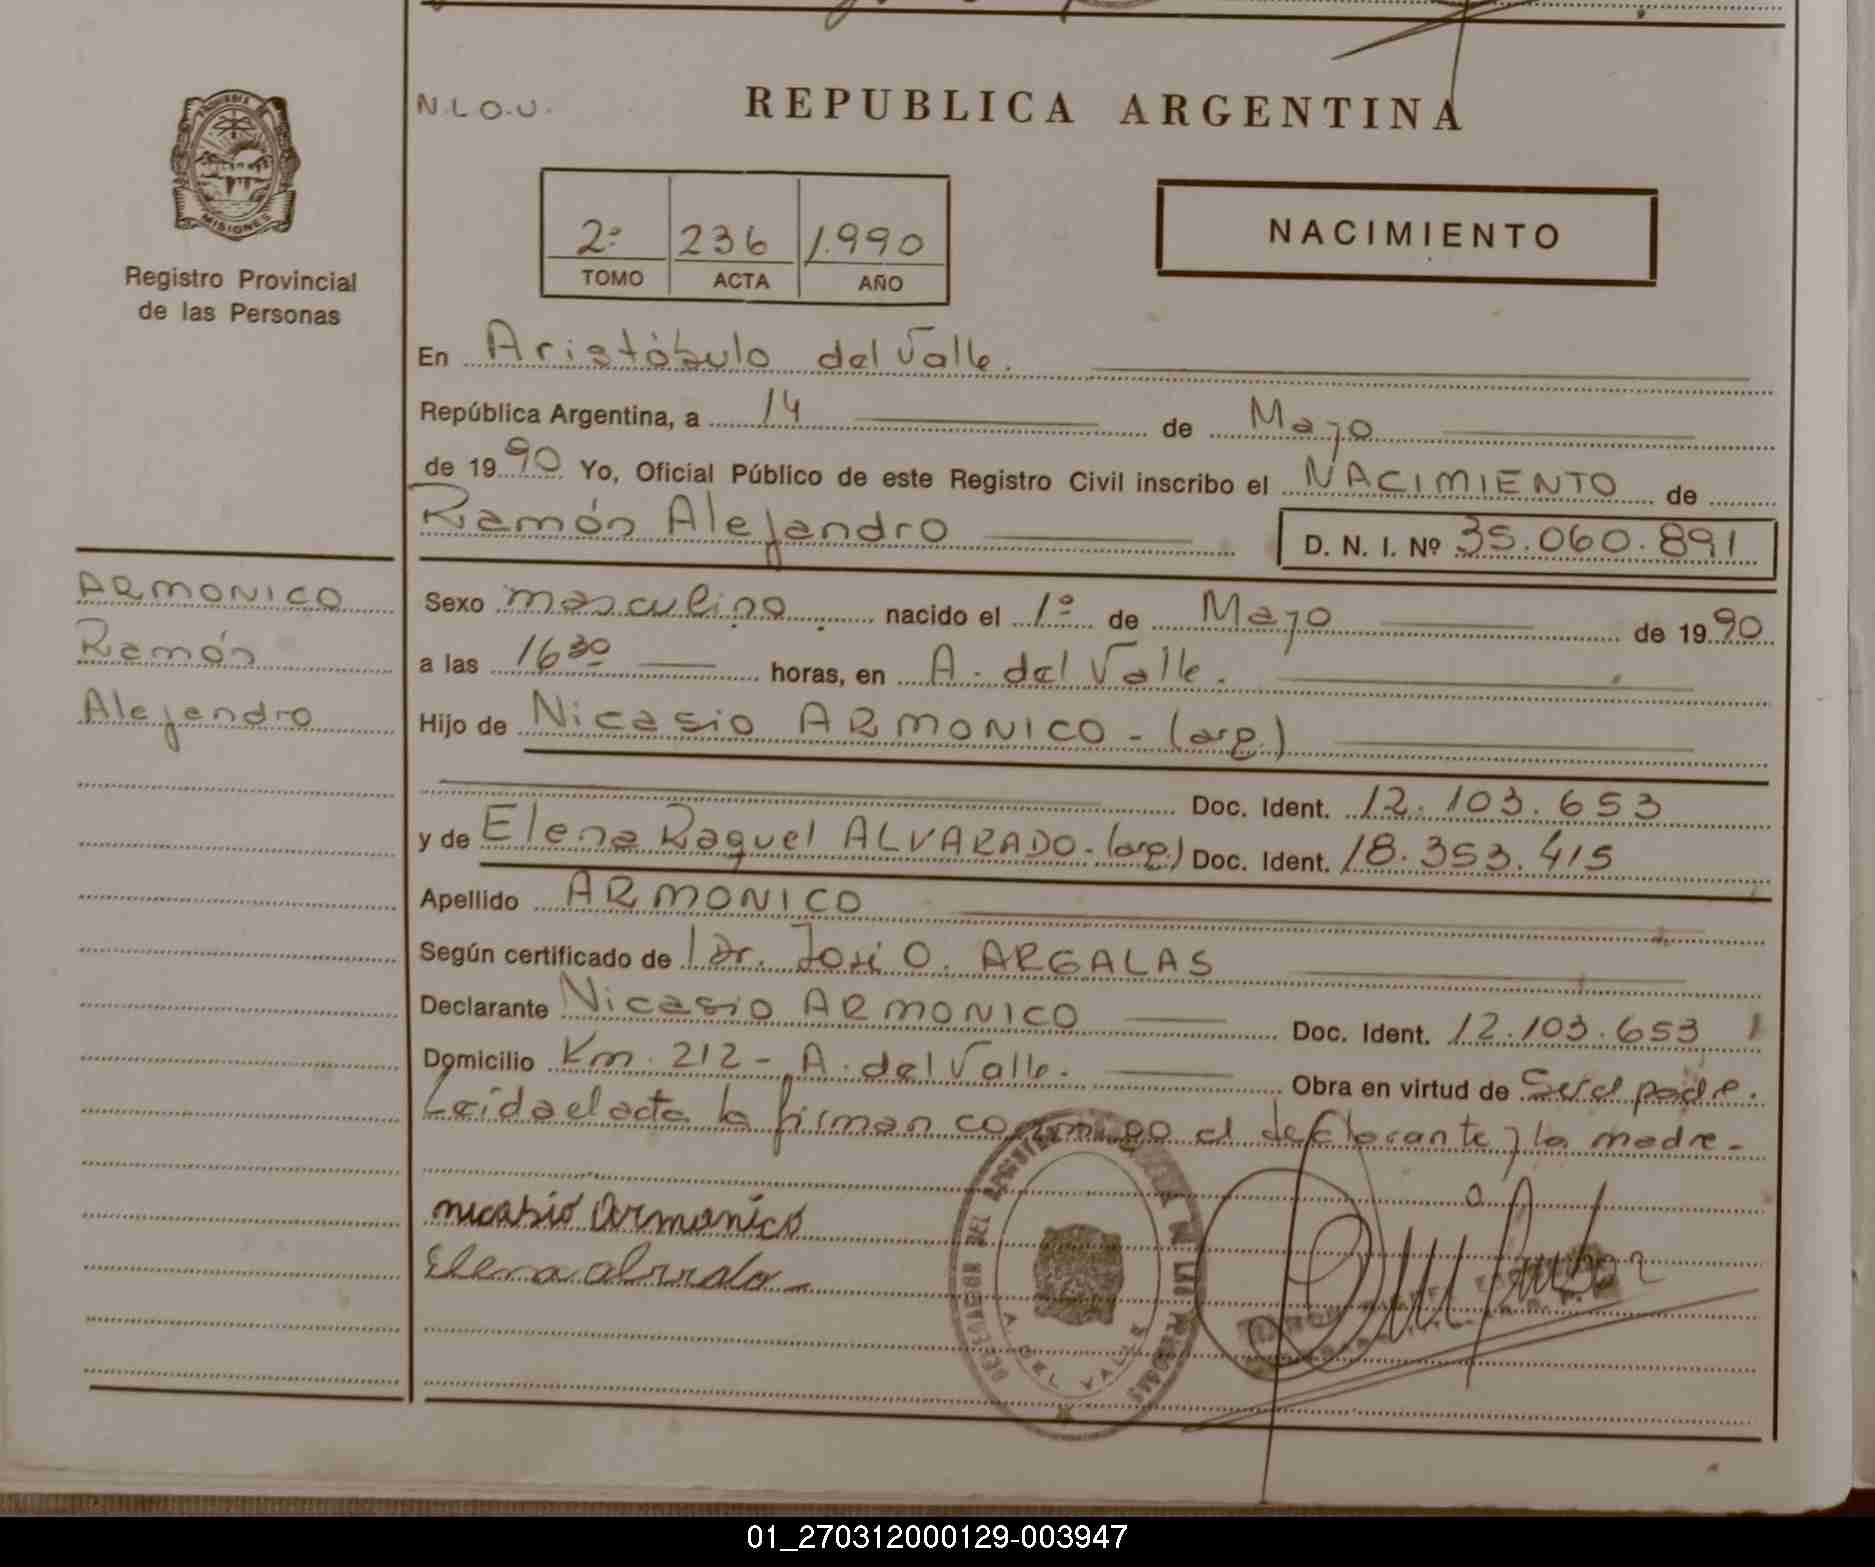 N.L.O.U.
REPUBLICA ARGENTINA
MISIONES
Registro Provincial
de las Personas
2º 236 1.990
TOMO ACTA AÑO
NACIMIENTO
En Aristóbulo del Valle.
República Argentina, a 14 de Mayo
de 1990 Yo, Oficial Público de este Registro Civil inscribo el NACIMIENTO de
Ramón Alejandro D. N. I. Nº 35.060.891
ARMONICO
Ramón
Alejandro
Sexo masculino nacido el 1º de Mayo de 1990
a las 16 30 horas, en A. del Valle.
Hijo de Nicasio ARMONICO - (arg.)
Doc. Ident. 12.103.653
y de Elena Raquel ALVARADO - (arg.) Doc. Ident. 18.353.415
Apellido ARMONICO
Según certificado de Dr. José O. ARGALAS
Declarante Nicasio ARMONICO Doc. Ident. 12.103.653
Domicilio Km. 212 - A. del Valle. Obra en virtud de Ser el padre.
Leída el acta la firman conmigo el declarante y la madre -
nicasio armonico
Elena
A. DEL VALLE
01_270312000129-003947